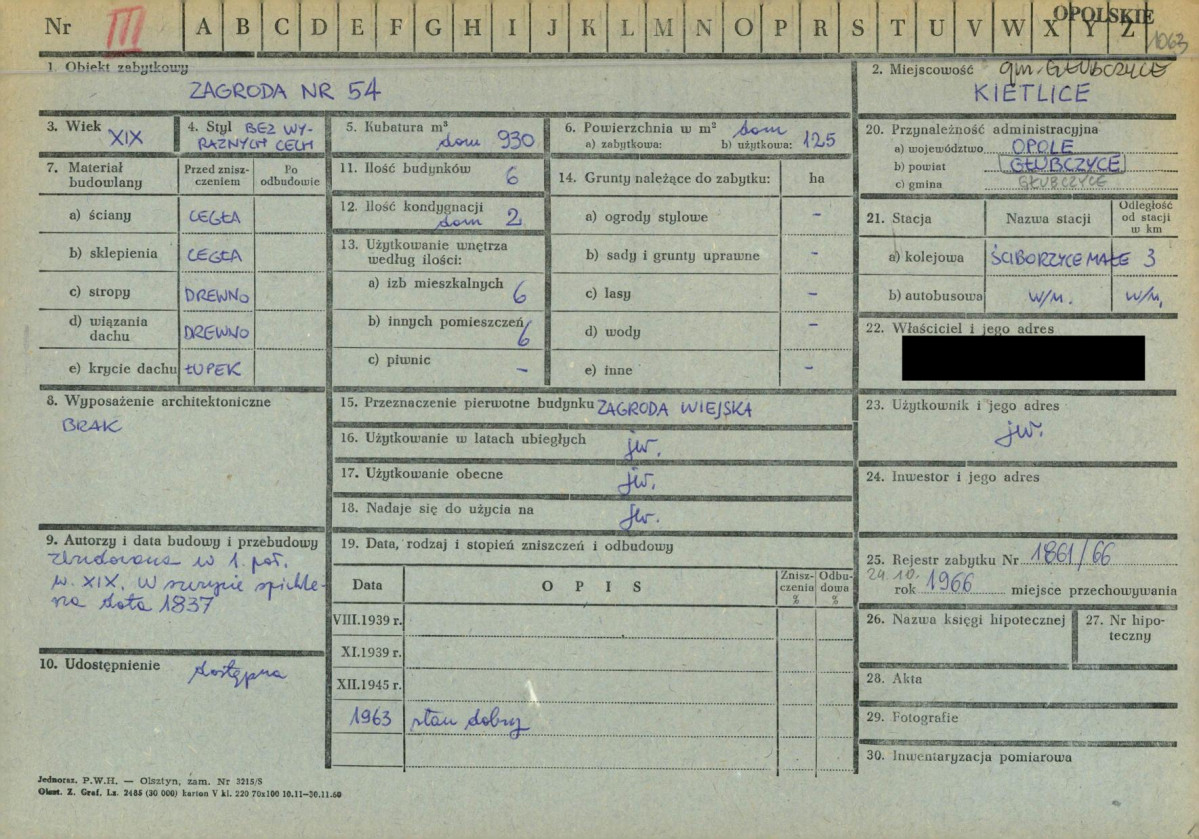 Nr III A B C D E F G H I J K L M N O P R S T U V W X Y Z OPOLSKIE
1063
1. Obiekt zabytkowy
ZAGRODA NR 54
2. Miejscowość gm. GŁUBCZYCE
KIETLICE
3. Wiek
XIX
4. Styl BEZ WY-
RAŹNYCH CECH
5. Kubatura m³
dom 930
6. Powierzchnia w m² dom
a) zabytkowa: b) użytkowa: 125
20. Przynależność administracyjna
a) województwo OPOLE
b) powiat GŁUBCZYCE
c) gmina GŁUBCZYCE
7. Materiał
budowlany
Przed znisz-
czeniem
Po
odbudowie
a) ściany CEGŁA
b) sklepienia CEGŁA
c) stropy DREWNO
d) wiązania
dachu DREWNO
e) krycie dachu ŁUPEK
11. Ilość budynków 6
12. Ilość kondygnacji
dom 2
13. Użytkowanie wnętrza
według ilości:
a) izb mieszkalnych 6
b) innych pomieszczeń 6
c) piwnic -
14. Grunty należące do zabytku: ha
a) ogrody stylowe -
b) sady i grunty uprawne -
c) lasy -
d) wody -
e) inne -
21. Stacja Nazwa stacji Odległość
od stacji
w km
a) kolejowa ŚCIBORZYCE MAŁE 3
b) autobusowa w/m. w/m.
22. Właściciel i jego adres
8. Wyposażenie architektoniczne
BRAK
15. Przeznaczenie pierwotne budynku ZAGRODA WIEJSKA
16. Użytkowanie w latach ubiegłych jw.
17. Użytkowanie obecne jw.
18. Nadaje się do użycia na jw.
23. Użytkownik i jego adres
jw.
24. Inwestor i jego adres
9. Autorzy i data budowy i przebudowy
zbudowana w 1. poł.
w. XIX. W szczycie spichle-
rza data 1837
10. Udostępnienie dostępna
19. Data, rodzaj i stopień zniszczeń i odbudowy
Data O P I S Znisz-
czenia
% Odbu-
dowa
%
VIII.1939 r.
XI.1939 r.
XII.1945 r.
1963 stan dobry
25. Rejestr zabytku Nr 1861/66
24.10.
rok 1966 miejsce przechowywania
26. Nazwa księgi hipotecznej
27. Nr hipo-
teczny
28. Akta
29. Fotografie
30. Inwentaryzacja pomiarowa
Jednoraz. P.W.H. — Olsztyn, zam. Nr 3215/S
Olszt. Z. Graf. Lz. 2485 (30 000) karton V kl. 220 70x100 10.11-30.11.60